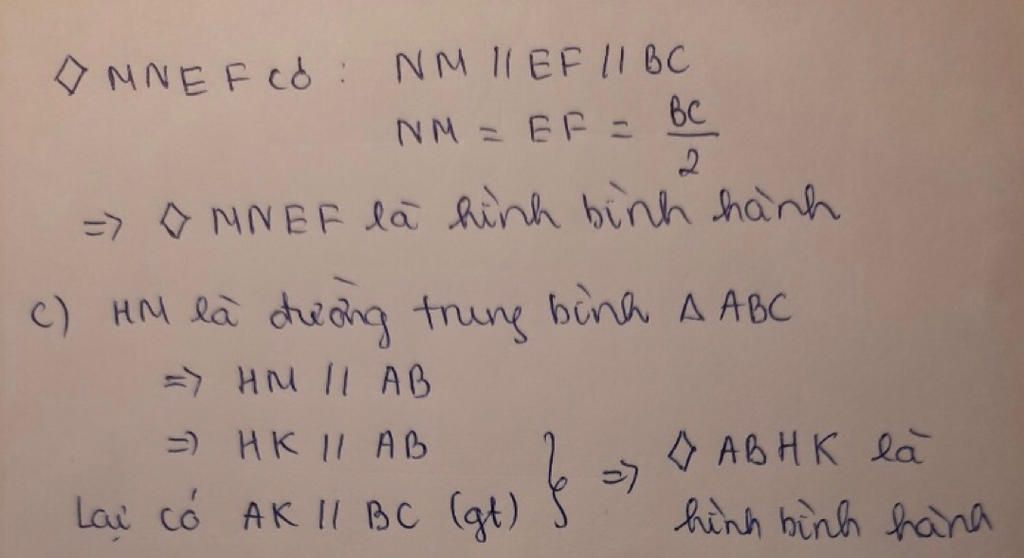 ◇ MNEF có : NM // EF // BC
NM = EF = BC/2
=> ◇ MNEF là hình bình hành
c) HM là đường trung bình Δ ABC
=> HM // AB
=> HK // AB
Lại có AK // BC (gt) } => ◇ ABHK là
hình bình hành